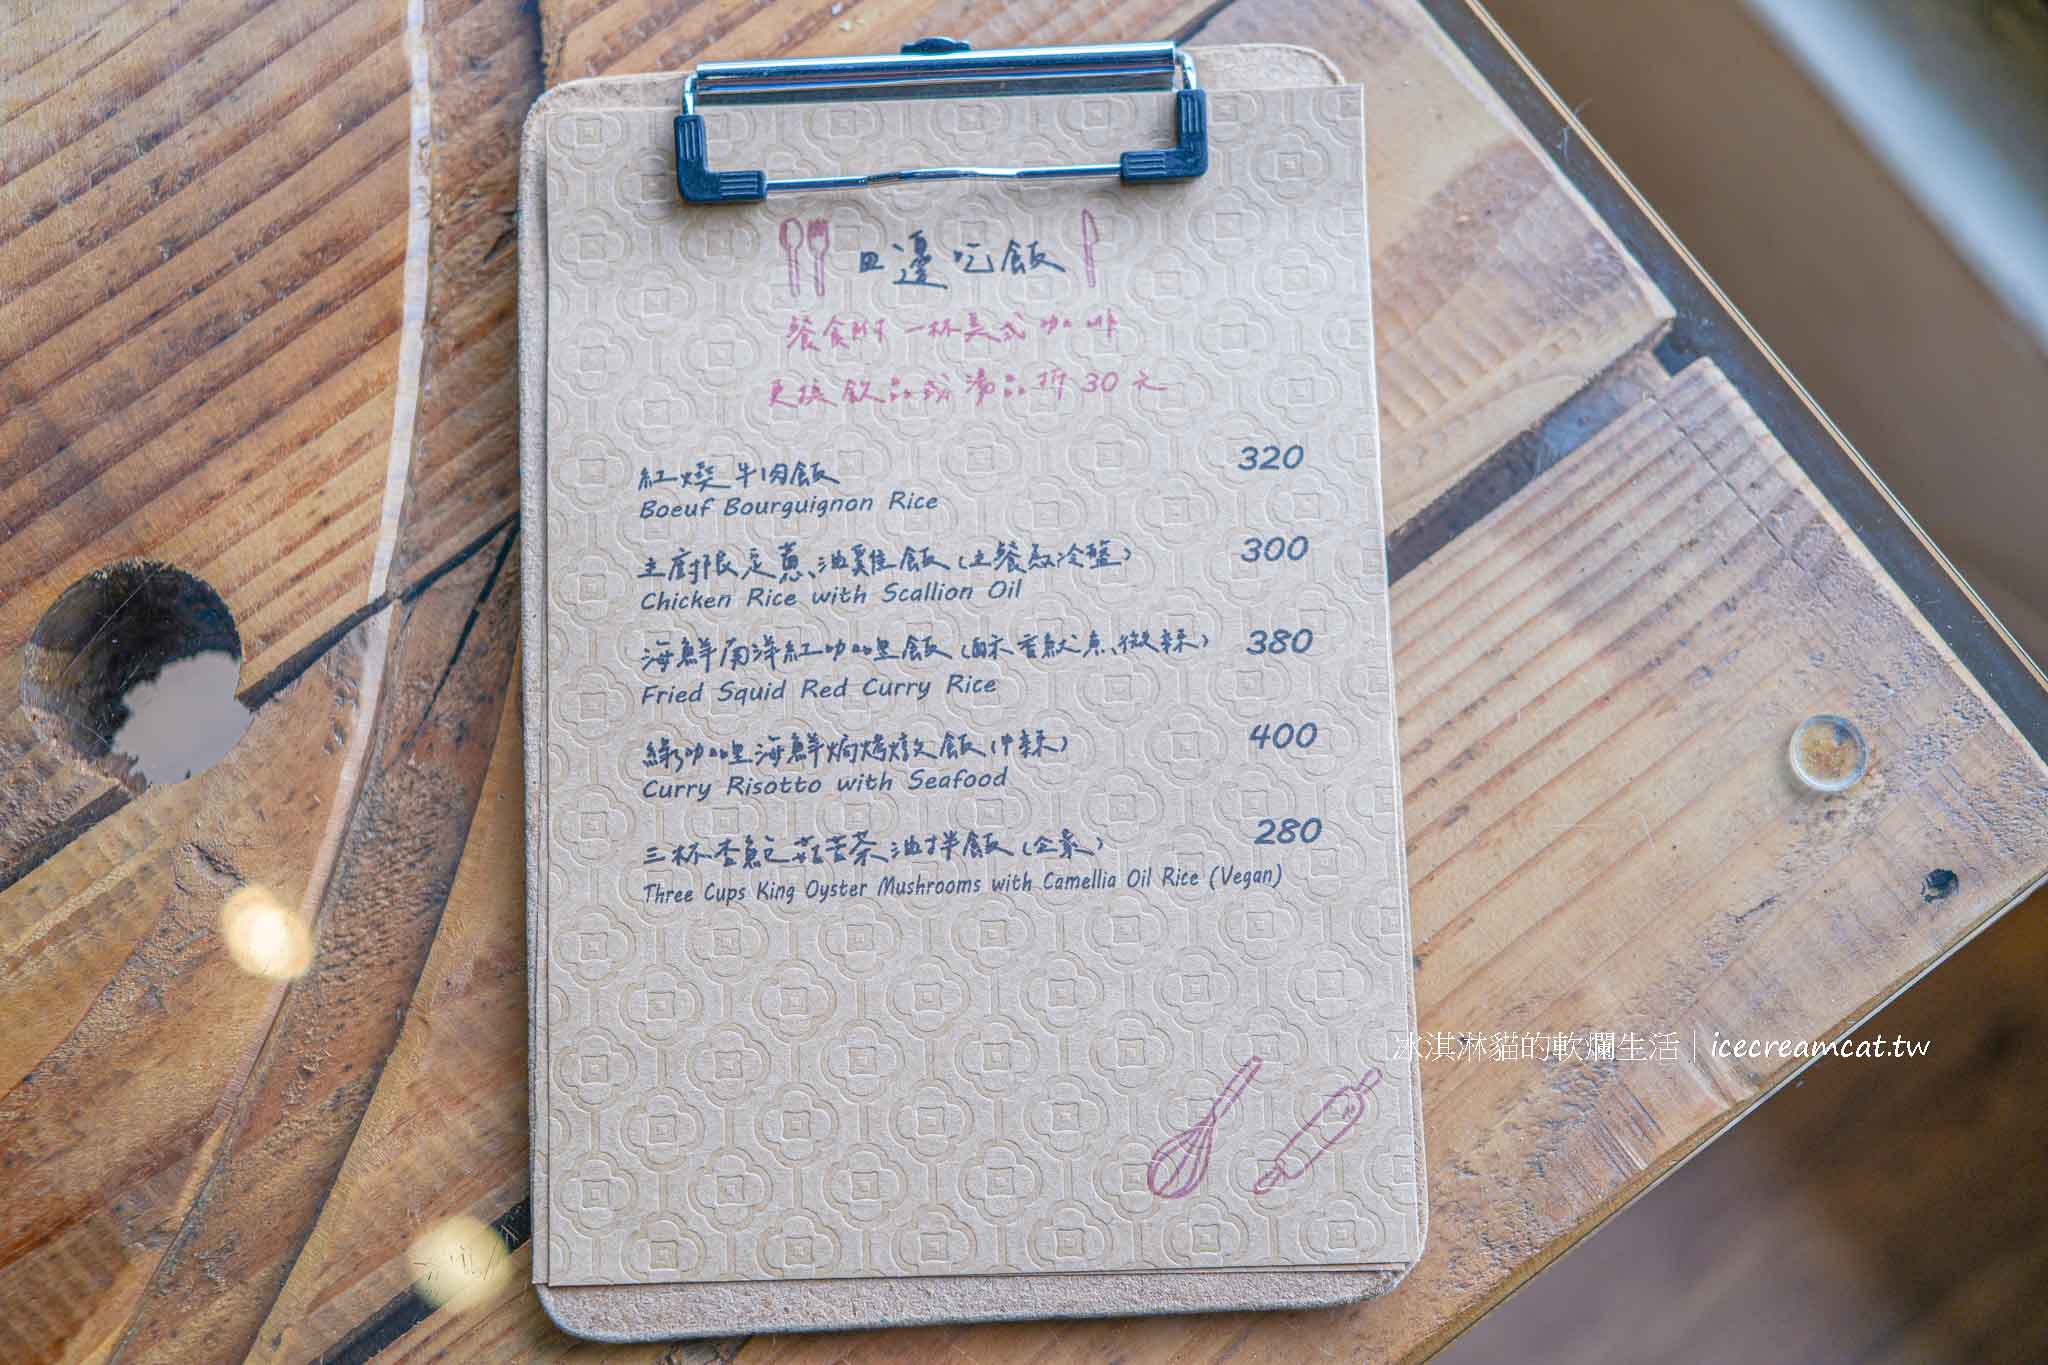 皿邊吃飯
餐食附一杯美式咖啡
更換飲品或湯品折30元
紅燒牛肉飯 320
Boeuf Bourguignon Rice
主廚限定蔥油雞飯(主餐為冷盤) 300
Chicken Rice with Scallion Oil
海鮮南洋紅咖哩飯(酥香魷魚、微辣) 380
Fried Squid Red Curry Rice
綠咖哩海鮮焗烤燉飯(中辣) 400
Curry Risotto with Seafood
三杯杏鮑菇苦茶油拌飯(全素) 280
Three Cups King Oyster Mushrooms with Camellia Oil Rice (Vegan)
冰淇淋貓的軟爛生活|icecreamcat.tw